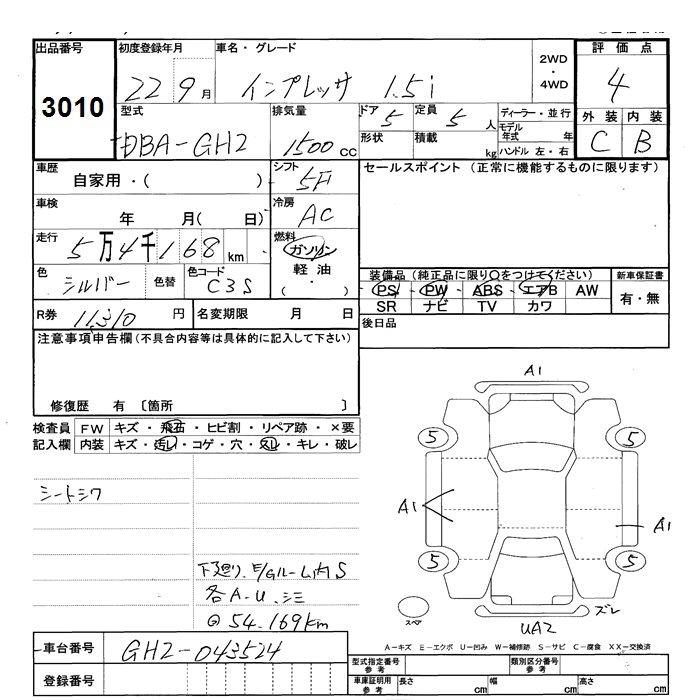 出品番号 初度登録年月 車名・グレード 2WD・4WD 評価点
3010 22 9月 インプレッサ 1.5i 4
型式 排気量 ドア 5 定員 5人 ディーラー・並行 外装 内装
DBA-GH2 1500cc 形状 積載 kg モデル年式 年 C B
ハンドル 左・右
車歴 シフト セールスポイント (正常に機能するものに限ります)
自家用・( ) 5F
車検 冷房
年 月( 日) AC
走行 燃料
5万4千168km ガソリン
色 色替 色コード 軽油 装備品 (純正品に限り○をつけてください) 新車保証書
シルバー C3S (・) PS PW ABS エアB AW 有・無
SR ナビ TV カワ
R券 11,310円 名変期限 月 日 後日品
注意事項申告欄(不具合内容等は具体的に記入して下さい)
修復歴 有 〔箇所 〕
検査員 FW キズ・飛石・ヒビ割・リペア跡・×要
記入欄 内装 キズ・汚レ・コゲ・穴・スレ・キレ・破レ
シートシワ
下廻り.E/Gルーム内S
各A-U.シミ
54.169km
A1
5 5
A1 A1
5 5
スペア ズレ
UA2
A-キズ E-エクボ U-凹み W-補修跡 S-サビ C-腐食 XX-交換済
車台番号 GH2-043524
型式指定番号 参考 類別区分番号 参考
登録番号
車庫証明用 参考 長さ cm 幅 cm 高さ cm